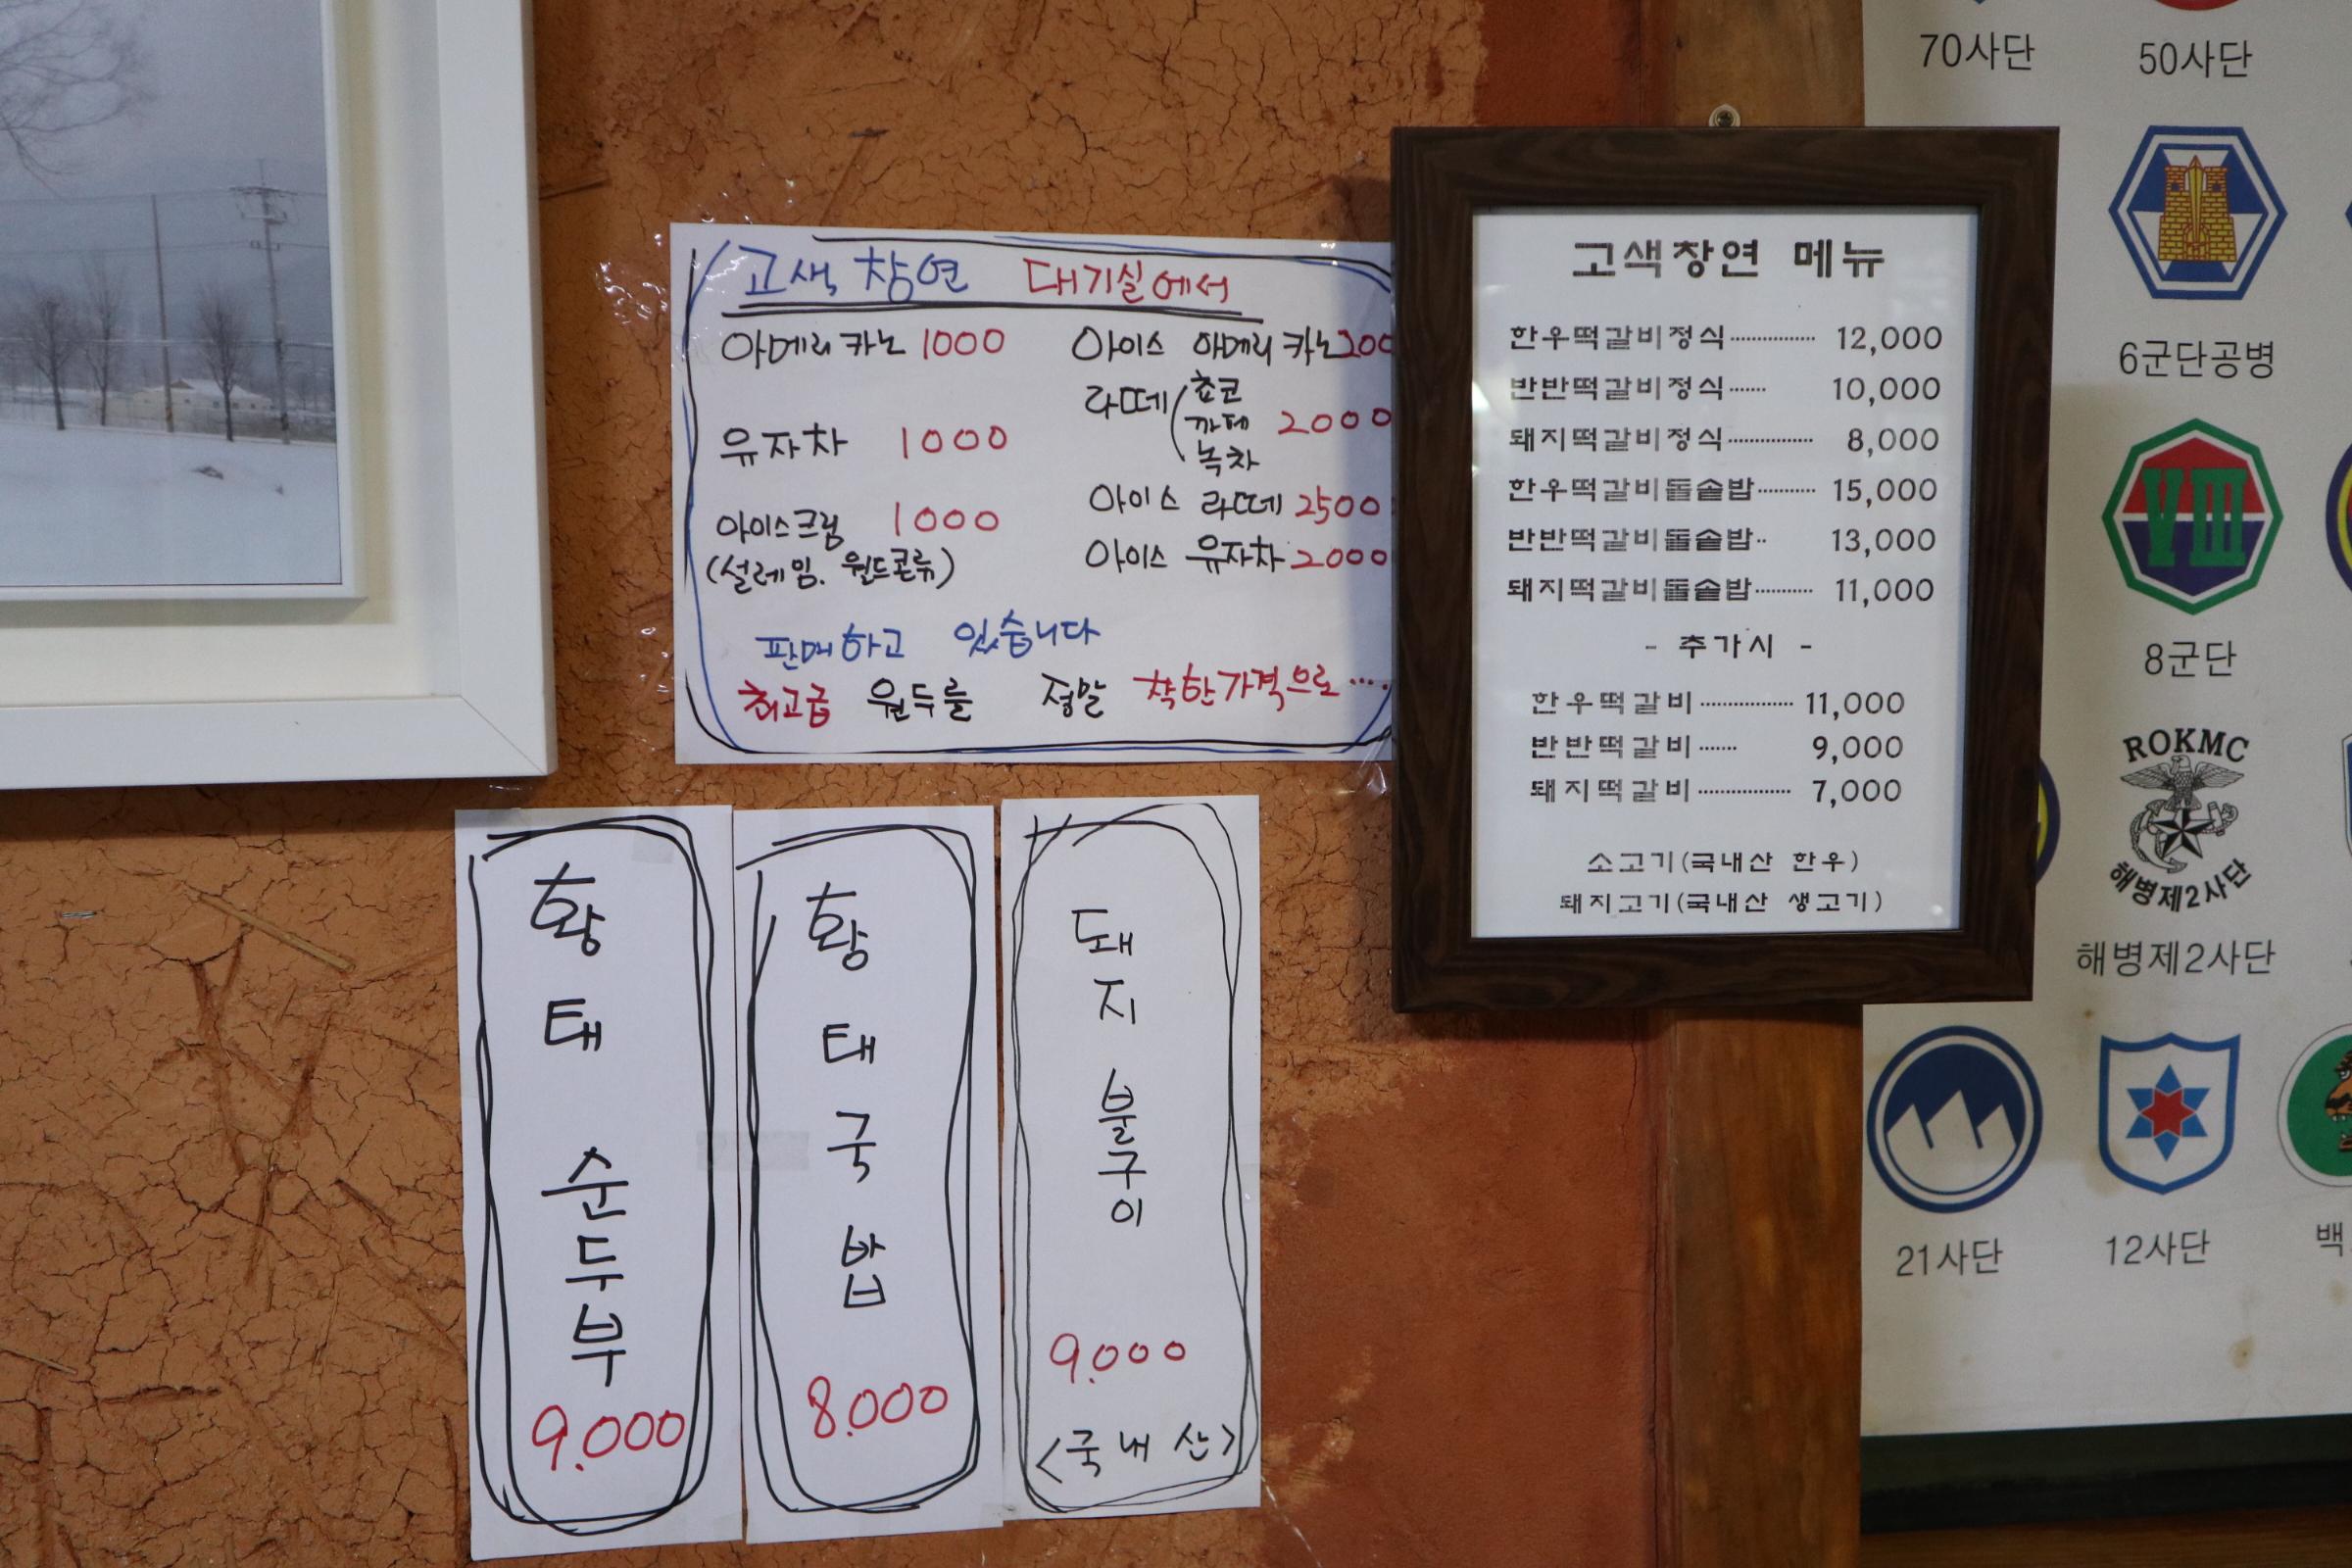 고색창연 대기실에서
아메리카노 1000
유자차 1000
아이스크림 1000
(설레임. 월드콘류)
아이스 아메리카노 200
라떼 (쵸코 까페 녹차 2000
아이스 라떼 2500
아이스 유자차 2000
판매하고 있습니다
최고급 원두를 정말 착한가격으로....
황태 순두부
9.000
황태국밥
8.000
돼지불구이
9.000
<국내산>
고색창연 메뉴
한우떡갈비정식 12,000
반반떡갈비정식 10,000
돼지떡갈비정식 8,000
한우떡갈비돌솥밥 15,000
반반떡갈비돌솥밥 13,000
돼지떡갈비돌솥밥 11,000
- 추가시 -
한우떡갈비 11,000
반반떡갈비 9,000
돼지떡갈비 7,000
소고기(국내산 한우)
돼지고기(국내산 생고기)
70사단 50사단
6군단공병
VIII
8군단
ROKMC
해병제2사단
해병제2사단
21사단 12사단 백